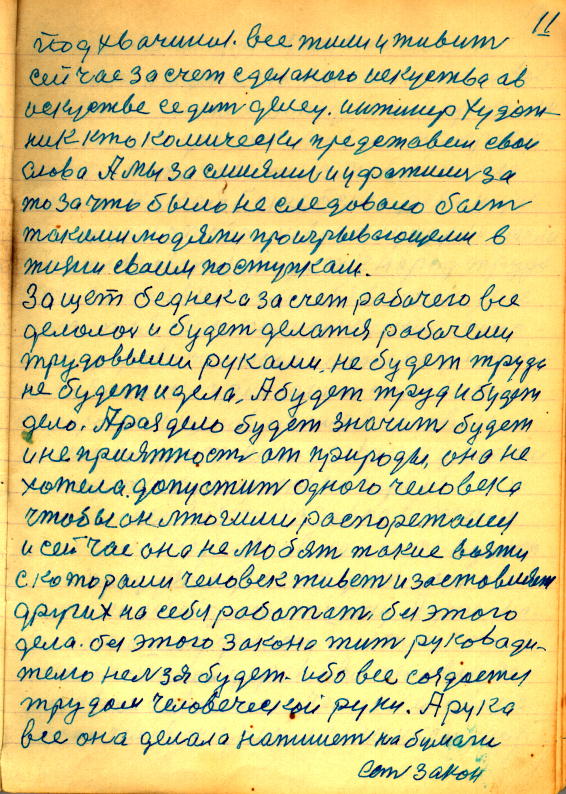 11
Подхвачини. все жили и живит
сейчас за счет сделаного искуства а в
искустве седит делец. инжинер худож-
ник кто комически представели свои
слова А мы засмиялис и уфатили за
то за что было не следовало быт
такими людями проигрывающеми в
жизни своим поступкам.
Защет беднека за счет рабочего все
делолос и будет делатся рабочеми
трудовыми руками. не будет труда
не будет и дела. А будет труд и будет
дело. А раз дело будет значит будет
и неприятност от природы, она не
хотела допустит одного человека
чтобы он многими распорежалсы
и сейчас она не любят такие вазжи
с которами человек живет и заставляит
других на себя работат. без этого
дела. без этого закона жит руковади-
телю нелзя будет. ибо все создается
трудом человеческой руки. А рука
все она делала напишет на бумаги
сот закон